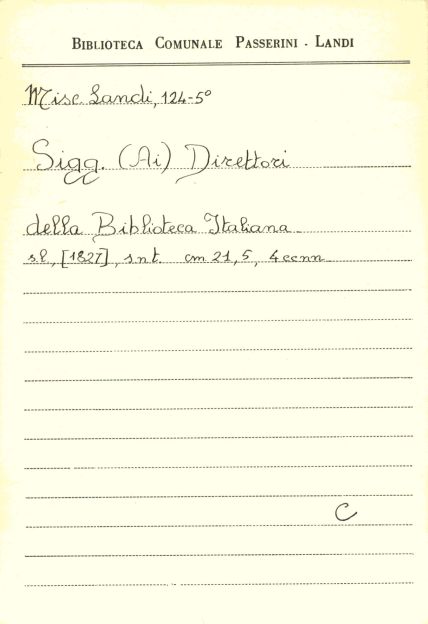 BIBLIOTECA COMUNALE PASSERINI - LANDI
Misc. Landi, 124-5°
Sigg. (Ai) Direttori
della Biblioteca Italiana
s.l., [1827], s.n.t. cm 21,5, 4 ccnn
C